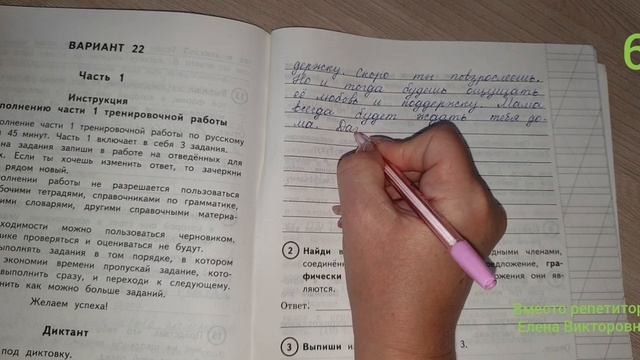 ВАРИАНТ 22
Часть 1
Инструкция
полнению части 1 тренировочной работы
олнение части 1 тренировочной работы по русскому
я 45 минут. Часть 1 включает в себя 3 задания.
на задания запиши в работе на отведённых для
х. Если ты хочешь изменить ответ, то зачеркни
рядом новый.
олнении работы не разрешается пользоваться
бочими тетрадями, справочниками по грамматике,
ими словарями, другими справочными материа-
ходимости можно пользоваться черновиком.
вике проверяться и оцениваться не будут.
выполнять задания в том порядке, в котором
экономии времени пропускай задание, кото-
выполнить сразу, и переходи к следующему.
нить как можно больше заданий.
Желаем успеха!
Диктант
под диктовку.
держку. Скоро ты повзрослеешь.
Но и тогда будешь ощущать
её любовь и поддержку. Мама
всегда будет ждать тебя до-
ма. Да
2 Найди в дными членами,
соединён едложение, гра-
фически ожения они яв-
ляются.
Ответ.
3 Выпиши и 3.
6
Вместо репетитор
Елена Викторовн